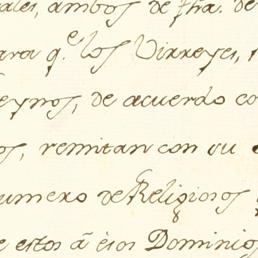 ales, ambos de fha. de
para q.e los Virreyes,
Reynos, de acuerdo co
os, remitan con su
numero de Religiosos
e estos á esos Dominios